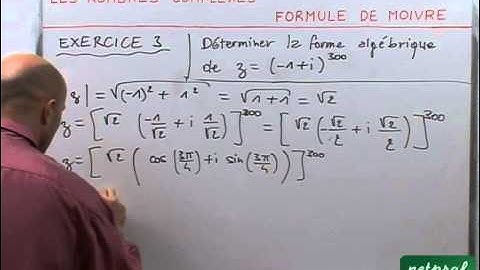 LES NOMBRES COMPLEXES
FORMULE DE MOIVRE
EXERCICE 3
Déterminer la forme algébrique
de z = (-1+i)^300
z| = √((-1)² + 1²) = √(1+1) = √2
z = [√2 (-1/√2 + i 1/√2)]^300 = [√2 (√2/2 + i √2/2)]^300
z = [√2 (cos(3π/4) + i sin(3π/4))]^300
netprof